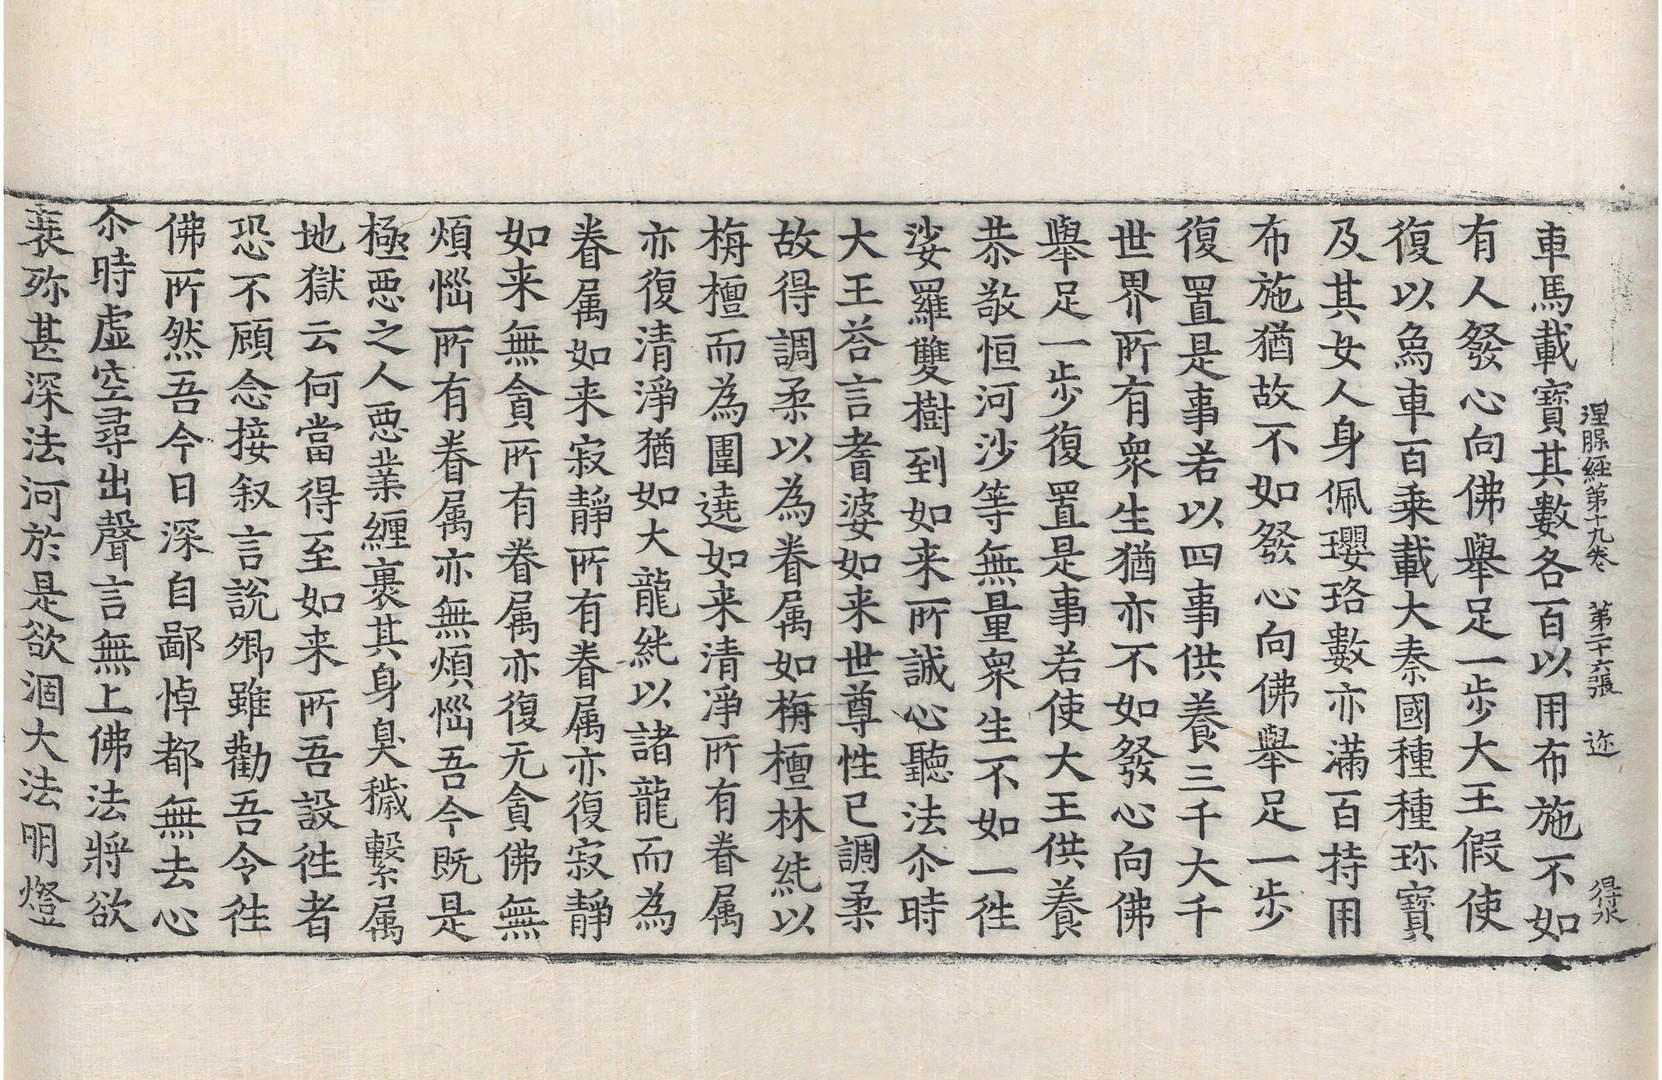 涅脲経第十九卷 第二十六張 迩 得水
車馬載寶其數各百以用布施不如
有人發心向佛舉足一步大王假使
復以象車百乗載大秦國種種珎寶
及其女人身佩瓔珞數亦滿百持用
布施猶故不如發心向佛舉足一步
復置是事若以四事供養三千大千
世界所有衆生猶亦不如發心向佛
舉足一步復置是事若使大王供養
恭敬恒河沙等無量衆生不如一徃
娑羅雙樹到如来所誠心聽法尒時
大王荅言耆婆如来世尊性已調柔
故得調柔以為眷属如栴檀林純以
栴檀而為圍遶如来清淨所有眷属
亦復清淨猶如大龍純以諸龍而為
眷属如来寂靜所有眷属亦復寂靜
如来無貪所有眷属亦復无貪佛無
煩惱所有眷属亦無煩惱吾今既是
極惡之人惡業纏裹其身臭穢繫属
地獄云何當得至如来所吾設徃者
恐不顧念接叙言說卿雖勸吾令徃
佛所然吾今日深自鄙悼都無去心
尒時虚空尋出聲言無上佛法將欲
衰殄甚深法河於是欲涸大法明燈